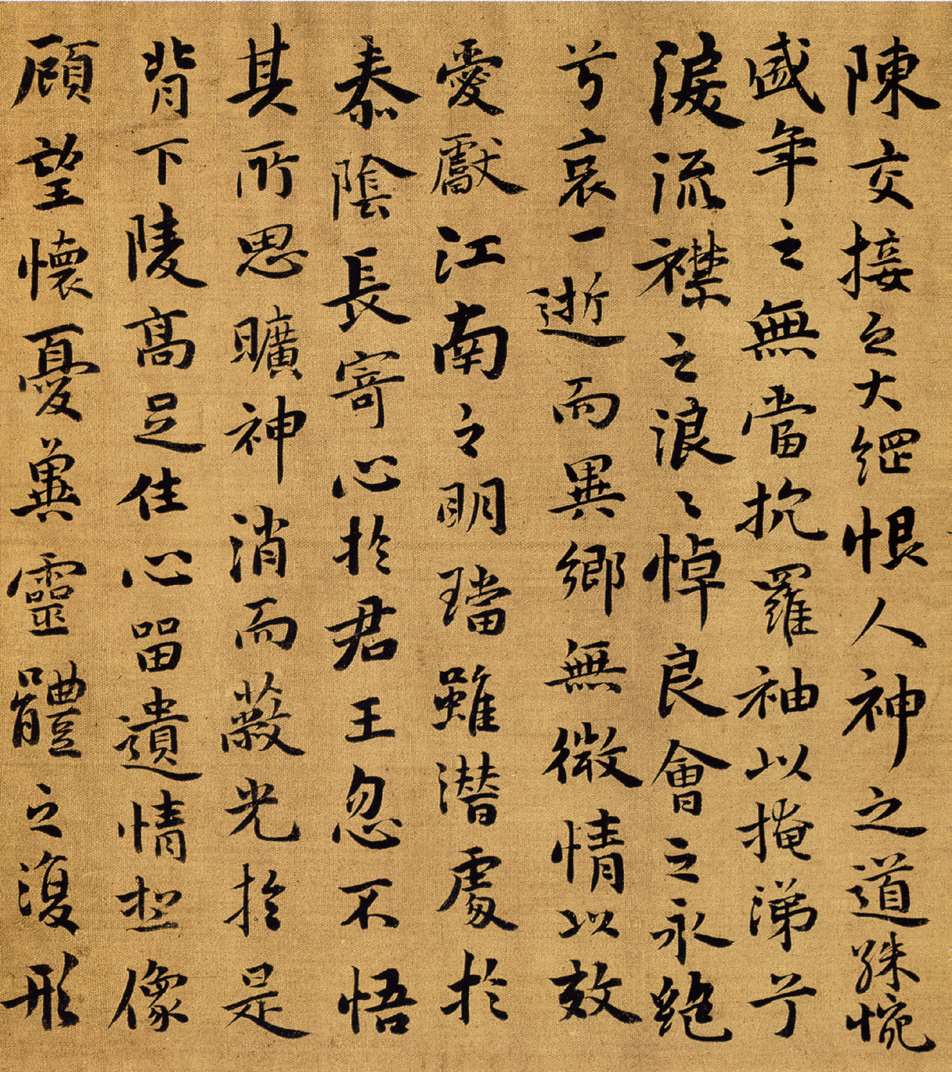 陳交接之大綱恨人神之道殊惋
盛年之無當抗羅袖以掩涕兮
淚流襟之浪〻悼良會之永絕
兮哀一逝而異鄉無微情以效
愛獻江南之明璫雖潜處於
泰陰長寄心於君王忽不悟
其所思曠神消而蔽光於是
背下陵高足住心留遺情想像
顧望懷憂冀靈體之復形